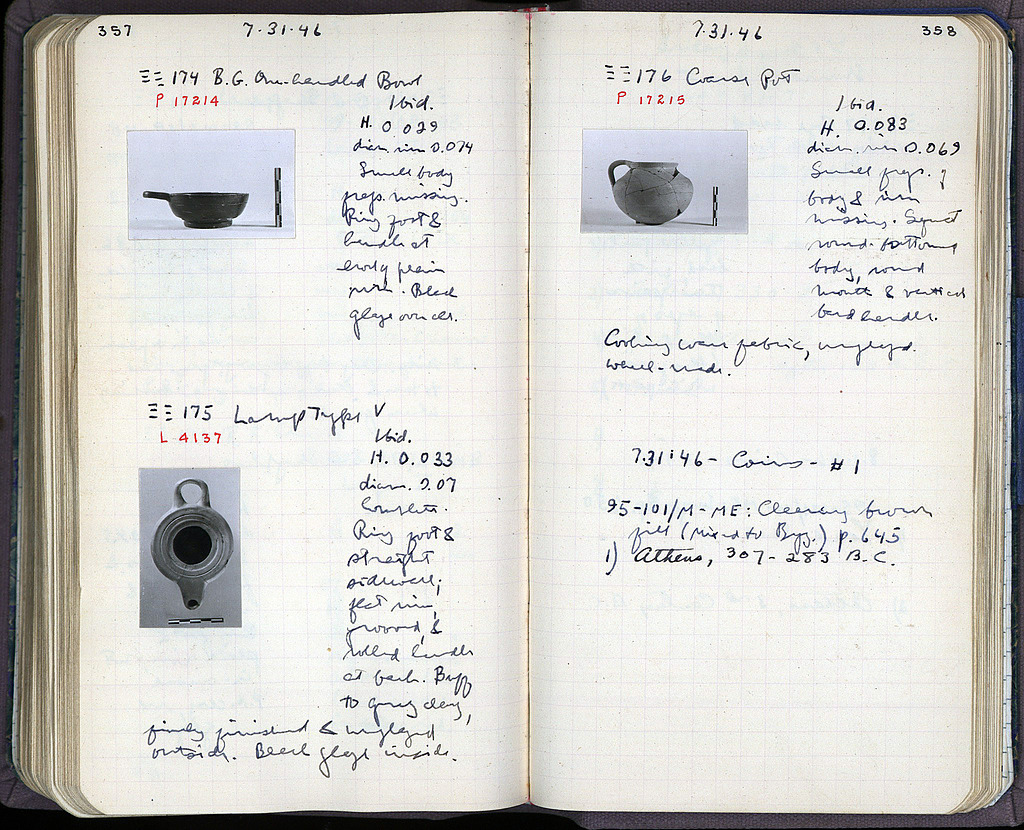 357
7·31·46
ΞΞ 174 B.G. One-handled Bowl
P 17214
Ibid.
H. 0.029
diam. rim 0.074
Small body
frags. missing.
Ring foot &
handle at
evenly plain
rim. Black
glaze over all.
ΞΞ 175 Lamp Type V
L 4137
Ibid.
H. 0.033
diam. 0.07
Complete.
Ring foot &
straight
sidewall;
flat rim,
grooved, &
rolled handle
at back. Buff
to gray clay,
finely finished & unglazed
outside. Black glaze inside.
358
7·31·46
ΞΞ 176 Coarse Pot
P 17215
Ibid.
H. 0.083
diam. rim 0.069
Small frags. of
body & rim
missing. Squat
round-bottomed
body, round
mouth & vertical
band handle.
Cooking ware fabric, unglazed.
wheel-made.
7·31·46 - Coins - #1
95-101/Μ-ΜΕ: Cleaning brown
fill (mixed to Byz.) p. 645
1) Athens, 307-283 B.C.